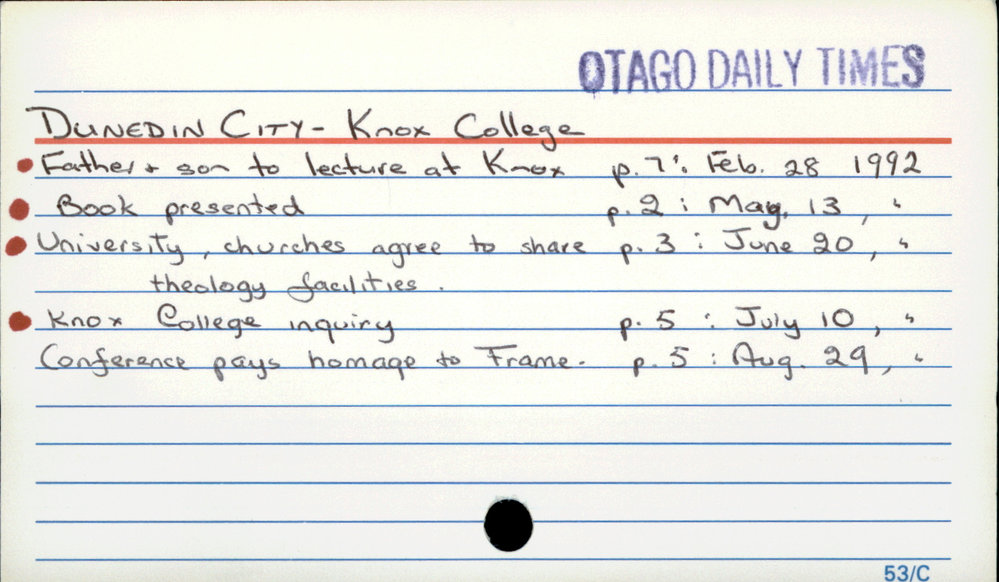 OTAGO DAILY TIMES
DUNEDIN CITY - Knox College
Father + son to lecture at Knox p. 7 : Feb. 28 1992
Book presented p. 2 : May. 13, "
University, churches agree to share p. 3 : June 20, "
theology facilities.
Knox College inquiry p. 5 : July 10, "
Conference pays homage to Frame. p. 5 : Aug. 29, "
53/C